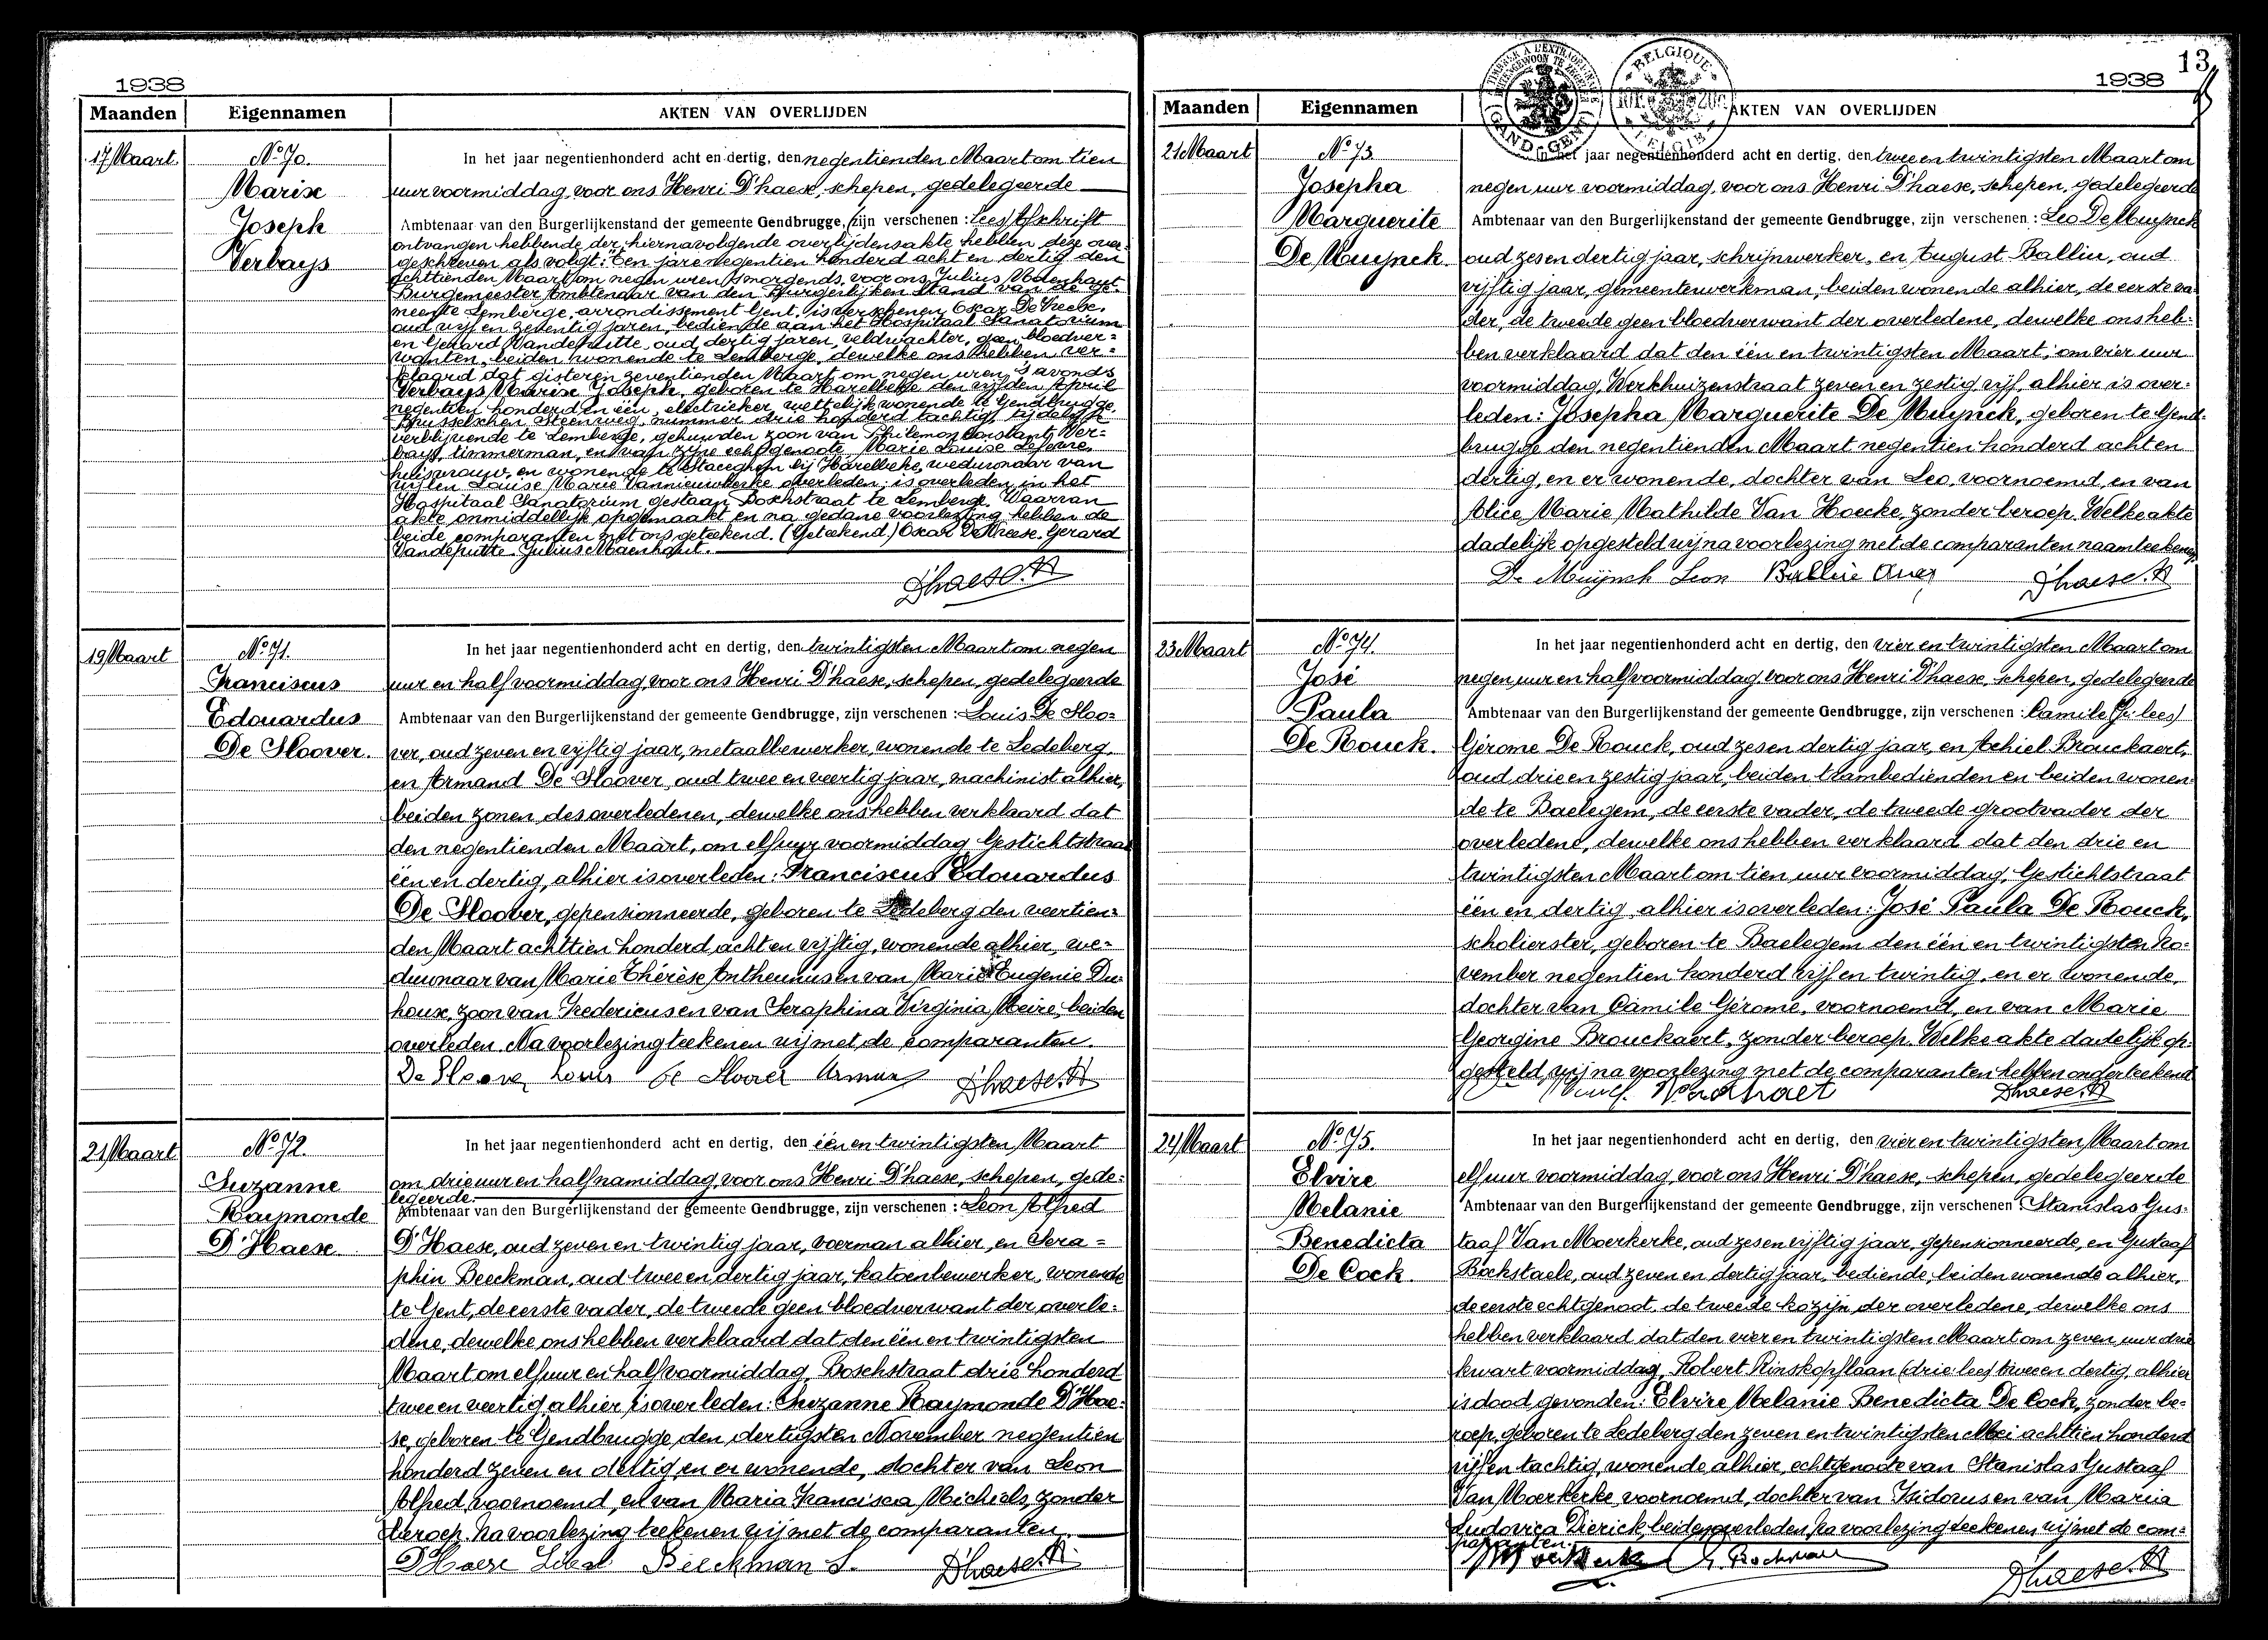 1938
Maanden Eigennamen AKTEN VAN OVERLIJDEN
17 Maart.
No 70.
Marix
Joseph
Verbays
In het jaar negentienhonderd acht en dertig, den negentienden Maart om tien
uur voormiddag, voor ons Henri D'haese, schepen, gedelegeerde
Ambtenaar van den Burgerlijkenstand der gemeente Gendbrugge, zijn verschenen : Lees Afschrift
ontvangen hebbende der hiernavolgende overlijdensakte hebben deze over-
geschreven als volgt: Ten jare negentien honderd acht en dertig den
achttienden Maart om negen uren 's morgends, voor ons, Julius Maenhaut
Burgemeester Ambtenaar van den Burgerlijken Stand van de ge-
meente Lemberge, arrondissement Gent, is verschenen Oscar De Vreese,
oud vijf en zeventig jaren, bediende aan het Hospitaal Sanatorium
en Gerard Vandeputte, oud dertig jaren, veldwachter, geen bloedver-
wanten, beiden wonende te Lemberge, dewelke ons hebben ver-
klaard dat gisteren zeventienden Maart om negen uren 's avonds
Verbays Marix Joseph, geboren te Harelbeke den vijfden April
negentien honderd en één, electrieker, wettelijk wonende te Gendbrugge,
Brusselschen Steenweg, nummer drie honderd tachtig, tijdelijk
verblijvende te Lemberge, gehuwden zoon van Philemon Constant Ver-
bays, timmerman, en van zijne echtgenoote Marie Louise
huisvrouw, en wonende te Staceghem bij Harelbeke, weduwnaar van
wijlen Louise Marie Vannieuwkerke overleden; is overleden in het
Hospitaal Sanatorium gestaan Boschstraat te Lemberge. Waarvan
akte onmiddellijk opgemaakt en na gedane voorlezing hebben de
beide comparanten met ons geteekend. (Geteekend.) Oscar De Vreese. Gerard
Vandeputte. Julius Maenhaut.
D'haese. H
19 Maart
No 71.
Franciscus
Edouardus
De Sloover.
In het jaar negentienhonderd acht en dertig, den twintigsten Maart om negen
uur en half voormiddag, voor ons Henri D'haese, schepen, gedelegeerde
Ambtenaar van den Burgerlijkenstand der gemeente Gendbrugge, zijn verschenen : Louis De Sloo-
ver, oud zeven en vijftig jaar, metaalbewerker, wonende te Ledeberg,
en Armand De Sloover, oud twee en veertig jaar, machinist alhier,
beiden zonen des overledenen, dewelke ons hebben verklaard dat
den negentienden Maart, om elf uur voormiddag Gestichtstraat
één en dertig, alhier is overleden: Franciscus Edouardus
De Sloover, gepensionneerde, geboren te Ledeberg den veertien-
den Maart achttien honderd acht en vijftig, wonende alhier, we-
duwnaar van Marie Thérèse Antheunus en van Marie Eugenie Du-
houx, zoon van Fredericus en van Seraphina Virginia Meire, beiden
overleden. Na voorlezing teekenen wij met de comparanten.
De Sloover Louis De Sloover Arman D'haese. H
21 Maart
No 72.
Suzanne
Raymonde
D'Haese
In het jaar negentienhonderd acht en dertig, den één en twintigsten Maart
om drie uur en half namiddag, voor ons Henri D'haese, schepen, gede-
legeerde.
Ambtenaar van den Burgerlijkenstand der gemeente Gendbrugge, zijn verschenen : Leon Alfred
D'Haese, oud zeven en twintig jaar, voerman alhier, en Sera-
phin Beeckman, oud twee en dertig jaar, katoenbewerker, wonende
te Gent, de eerste vader, de tweede geen bloedverwant der overle-
dene, dewelke ons hebben verklaard dat den één en twintigsten
Maart om elf uur en half voormiddag, Boschstraat drie honderd
twee en veertig alhier is overleden: Suzanne Raymonde D'Hae-
se, geboren te Gendbrugge, den dertigsten November negentien
honderd zeven en dertig, en er wonende, dochter van Leon
Alfred, voornoemd, en van Maria Francisca Michiels, zonder
beroep. Na voorlezing teekenen wij met de comparanten.
D'Haese Leon Beeckman S. D'haese. H
13
1938
Maanden Eigennamen AKTEN VAN OVERLIJDEN
GAND-GENT
BELGIQUE
BELGIE
21 Maart
No 73.
Josepha
Marguerite
De Muynck.
In het jaar negentienhonderd acht en dertig, den twee en twintigsten Maart om
negen uur voormiddag, voor ons Henri D'haese, schepen, gedelegeerde
Ambtenaar van den Burgerlijkenstand der gemeente Gendbrugge, zijn verschenen : Leo De Muynck
oud zes en dertig jaar, schrijnwerker, en August Balliu, oud
vijftig jaar, gemeentewerkman, beiden wonende alhier, de eerste va-
der, de tweede geen bloedverwant der overledene, dewelke ons heb-
ben verklaard dat den één en twintigsten Maart, om vier uur
voormiddag, Werkhuizenstraat zeven en zestig vijf, alhier is over-
leden: Josepha Marguerite De Muynck, geboren te Gend-
brugge den negentienden Maart negentien honderd acht en
dertig, en er wonende, dochter van Leo, voornoemd, en van
Alice Marie Mathilde Van Hoecke, zonder beroep. Welke akte
dadelijk opgesteld wij na voorlezing met de comparanten naamteekenen.
De Muynck Leon Balliu Aug D'haese. H
23 Maart
No 74.
José
Paula
De Rouck.
In het jaar negentienhonderd acht en dertig, den vier en twintigsten Maart om
negen uur en half voormiddag, voor ons Henri D'haese, schepen, gedelegeerde
Ambtenaar van den Burgerlijkenstand der gemeente Gendbrugge, zijn verschenen : Camile (Jé: lees)
Gérome De Rouck, oud zes en dertig jaar, en Achiel Brouckaert,
oud drie en zestig jaar, beiden trambedienden en beiden wonen-
de te Baelegem, de eerste vader, de tweede grootvader der
overledene, dewelke ons hebben verklaard dat den drie en
twintigsten Maart om tien uur voormiddag, Gestichtstraat
één en dertig alhier is overleden: José Paula De Rouck,
scholierster, geboren te Baelegem den één en twintigsten No-
vember negentien honderd vijf en twintig, en er wonende,
dochter van Camile Gérome, voornoemd, en van Marie
Georgine Brouckaert, zonder beroep. Welke akte dadelijk op-
gesteld, wij na voorlezing met de comparanten hebben onderteekend.
D'haese. H
24 Maart
No 75.
Elvire
Melanie
Benedicta
De Cock.
In het jaar negentienhonderd acht en dertig, den vier en twintigsten Maart om
elf uur voormiddag, voor ons Henri D'haese, schepen, gedelegeerde
Ambtenaar van den Burgerlijkenstand der gemeente Gendbrugge, zijn verschenen : Stanislas Gus-
taaf Van Moerkerke, oud zes en vijftig jaar, gepensionneerde, en Gustaaf
Bockstaele, oud zeven en dertig jaar, bediende, beiden wonende alhier,
de eerste echtgenoot, de tweede kozijn der overledene, dewelke ons
hebben verklaard dat den vier en twintigsten Maart om zeven uur drie
kwart voormiddag, Robert Rinskopflaan (drie: lees) twee en dertig, alhier
is dood gevonden: Elvire Melanie Benedicta De Cock, zonder be-
roep, geboren te Ledeberg den zeven en twintigsten Mei achttien honderd
vijf en tachtig, wonende alhier, echtgenoote van Stanislas Gustaaf
Van Moerkerke, voornoemd, dochter van Isidorus en van Maria
Ludovica Dierick, beiden overleden. Na voorlezing teekenen wij met de com-
paranten.
D'haese. H